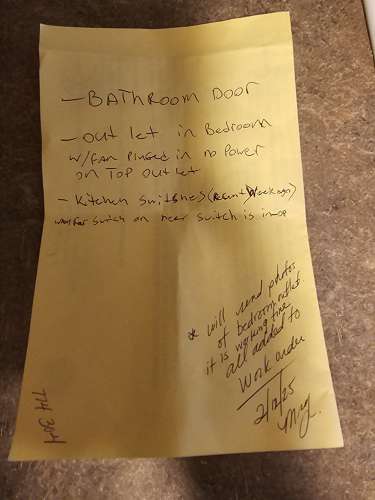 - BATHROOM DOOR
- out let in Bedroom
w/FAN Pluged in no Power
on Top outlet
- Kitchen switches
switch on near switch is in
* will send photos
of bedroom outlet
it is working fine
all added to
work order
2/12/25
714 304